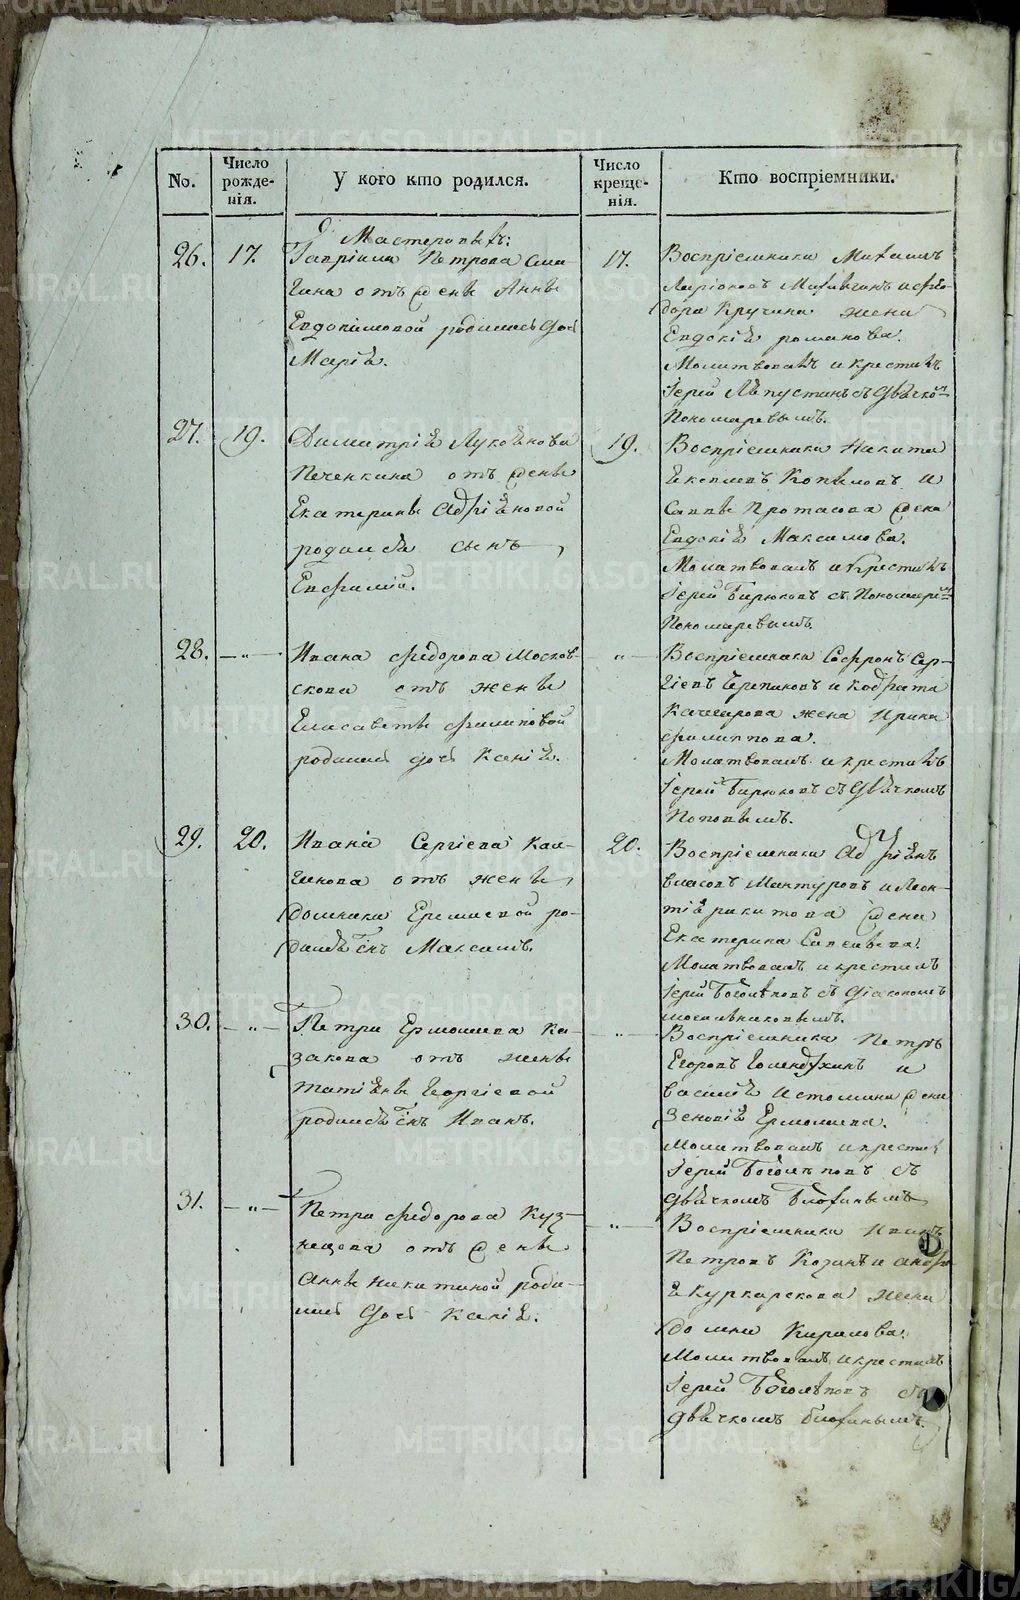 No.
Число рожде-нія.
У кого кто родился.
Число креще-нія.
Кто воспріемники.
Мастеровыхъ:
26.
17.
Гавріила Петрова
отъ жены Анны
Евдокимовой родилась дочь
Марія.
17.
Воспріемники Михаилъ
Ларіоновъ
жена
Евдокія романова.
Молитвовалъ и крестилъ
Іерей
Пономаревымъ.
27.
19.
Димитрія Лукоянова
Печенкина отъ жены
Екатерины Адріяновой
родился сынъ
Евфимій.
19.
Воспріемники Никита
Копыловъ и
Саввы Протасова жена
Евдокія Максимова.
Молитвовалъ и крестилъ
Іерей Бирюковъ съ
Пономаревымъ
28.
—"—
Ивана Федорова Москов-
скова отъ жены
Елисаветы Филиповой
родилась дочь Ксенія.
"
Воспріемники Софронъ Сер-
гіевъ Черепановъ и Кодрата
жена Ирина
филиппова.
Молитвовалъ и крестилъ
Іерей Бирюковъ съ дьячкомъ
Поповымъ.
29.
20.
Ивана Сергіева
отъ жены
Домники Еремеевой ро-
дился сынъ Максимъ.
20.
Воспріемники Адріянъ
власовъ Мантуровъ и Леон-
тія рикитова жена
Екатерина Савельева.
Молитвовалъ и крестилъ
Іерей Боголѣповъ съ діакономъ
30.
—"—
Петра Ермолаева Ка-
закова отъ жены
татіяны Георгіевой
родился сынъ Иванъ.
"
Воспріемники Петръ
Егоровъ Голендухинъ и
василія Истомина жена
Зеновія Ермолаева.
Молитвовалъ и крестилъ
Іерей Боголѣповъ съ
дьячкомъ
31.
—"—
Петра Федорова Куз-
нецова отъ жены
Анны никитиной роди-
лась дочь Ксенія.
"
Воспріемники Иванъ
Петровъ Козинъ и
жена
Домна Кирилова.
Молитвовалъ и крестилъ
Іерей Боголѣповъ съ
дьячкомъ
METRIKI.GASO-URAL.RU